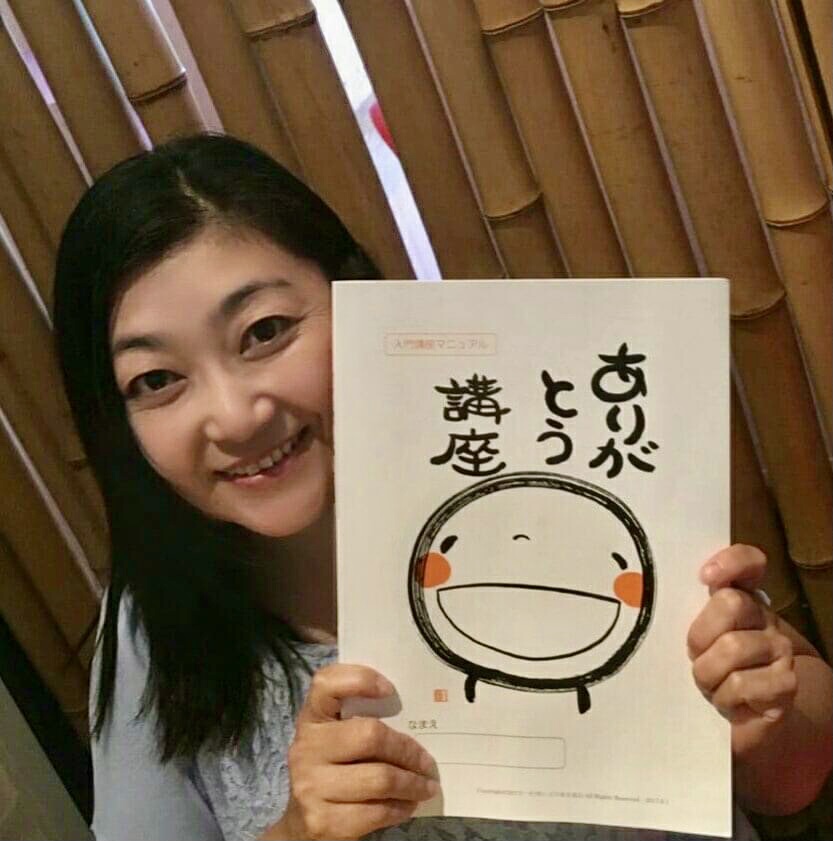 入門講座マニュアル
ありが
とう
講座
なまえ
All Rights Reserved.